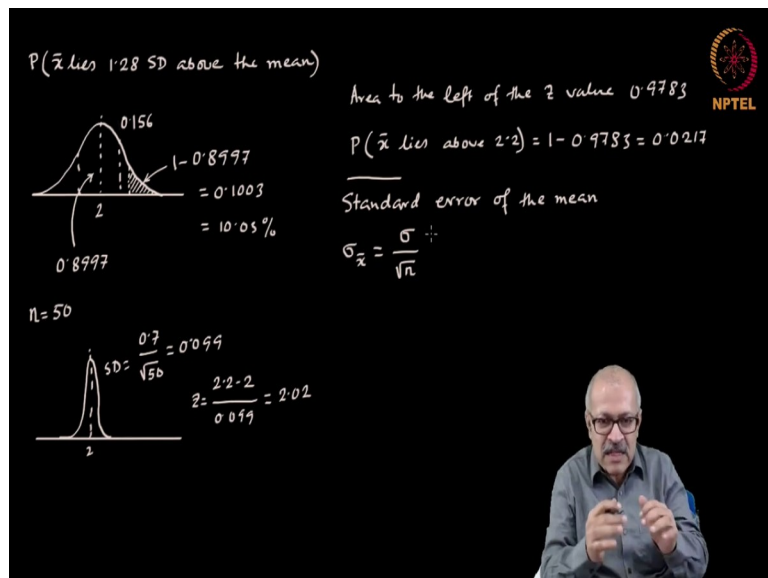 P(x̄ lies 1.28 SD above the mean)
0.156
1-0.8997
= 0.1003
= 10.03%
2
0.8997
n=50
SD = 0.7/√50 = 0.099
Z = 2.2-2/0.099 = 2.02
2
Area to the left of the Z value 0.9783
P(x̄ lies above 2.2) = 1-0.9783 = 0.0217
Standard error of the mean
σx̄ = σ/√n
NPTEL